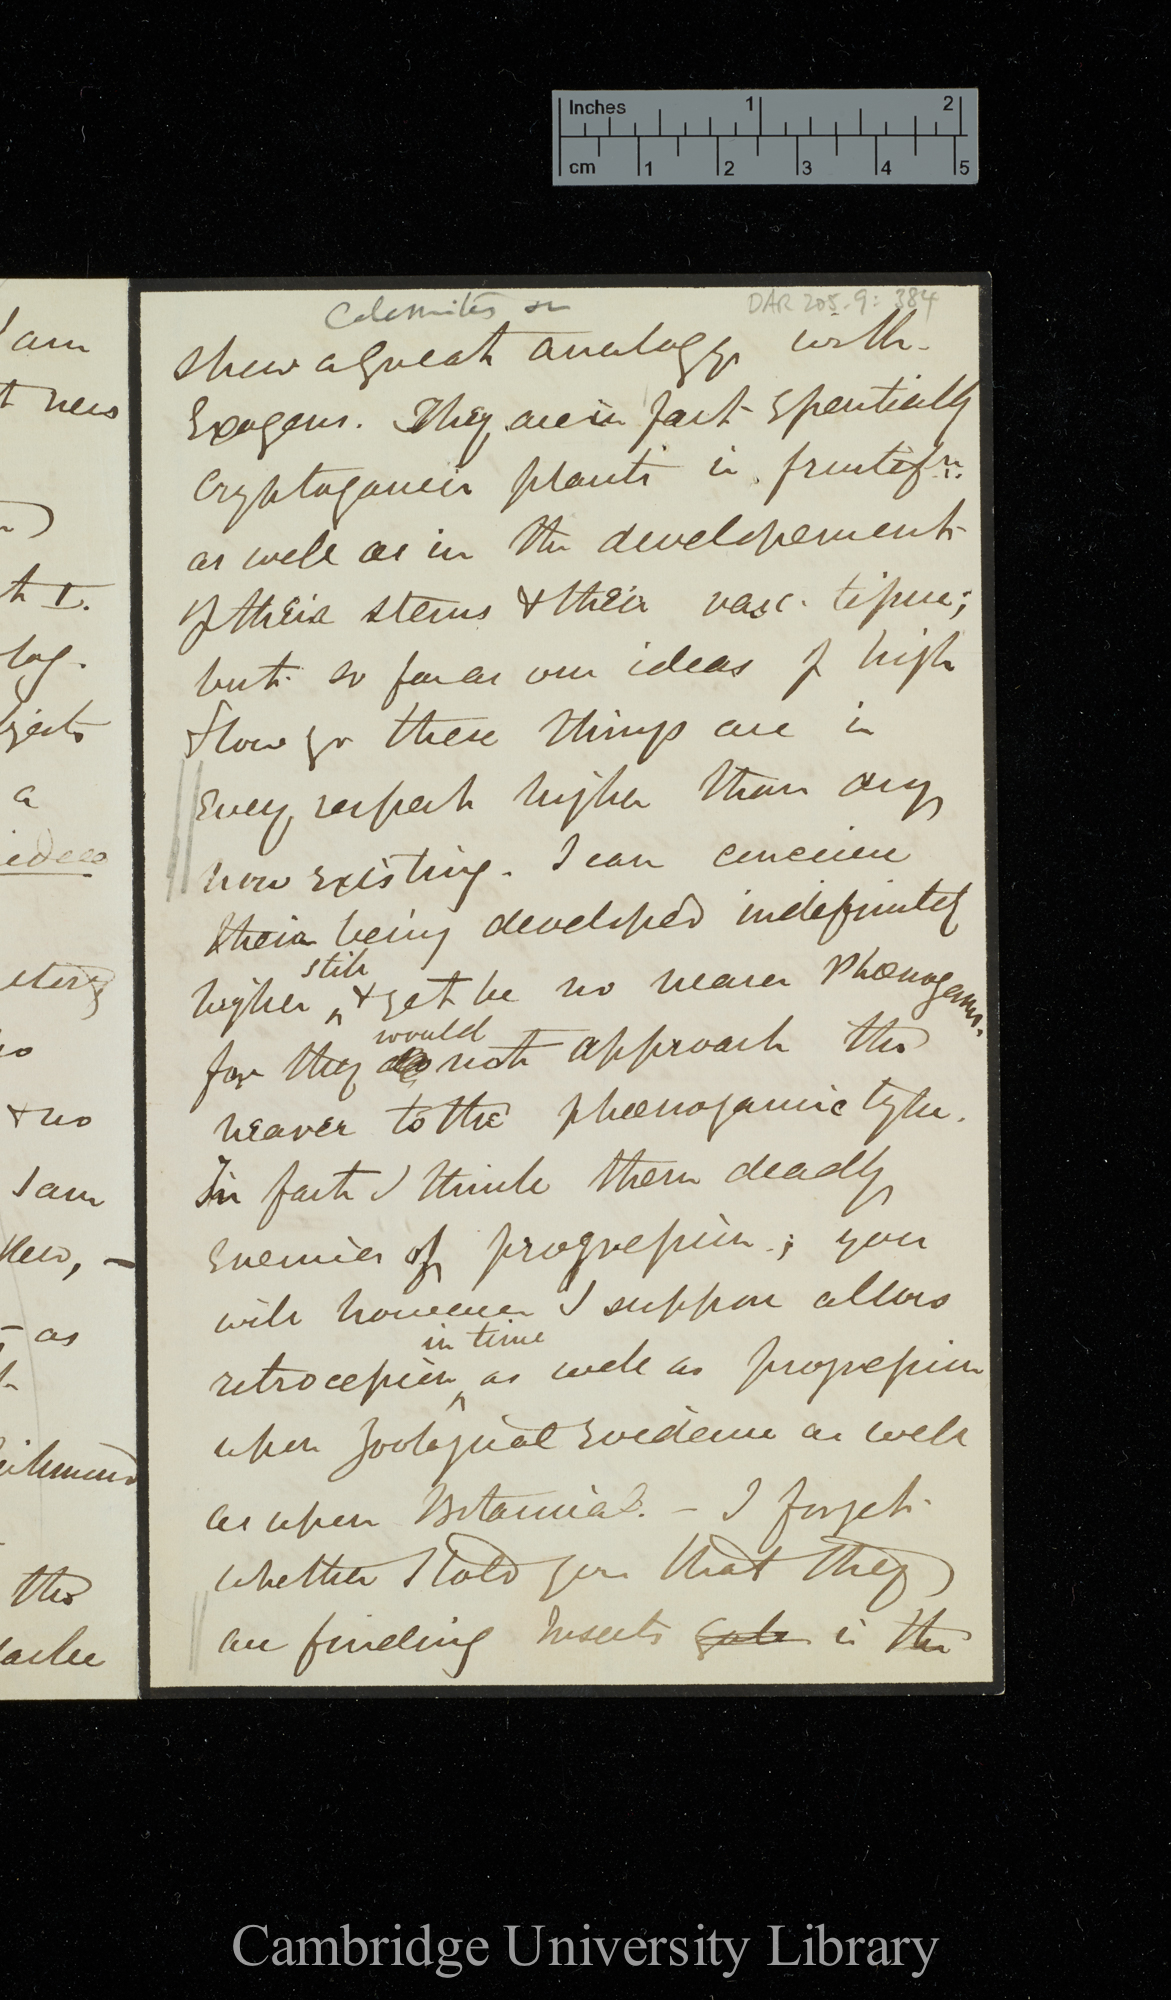 Inches 1 2
cm 1 2 3 4 5
DAR 205.9: 384
shew a great analogy with
Exogens. They are in fact Essentially
Cryptogamic plants in fructifn:
as well as in the developement
of their stems & their vasc. tissue;
but so far as our ideas of high
& low go these things are in
Every respect higher than any
now Existing. I can conceive
their being developed indefinitely
higher still & yet be no nearer Phœnogams.
for they would not approach the
nearer to the phœnogamic type.
In fact I think them deadly
Enemies of progression; you
will however I suppose allow
retrocession in time as well as progression
upon Zoological Evidence as well
as upon Botanical. — I forget
whether I told you that they
are finding Insects in the
am
t new
)
t I.
log.
jects
a
ideas
no
& no
I am
New, —
– as
the
Cambridge University Library